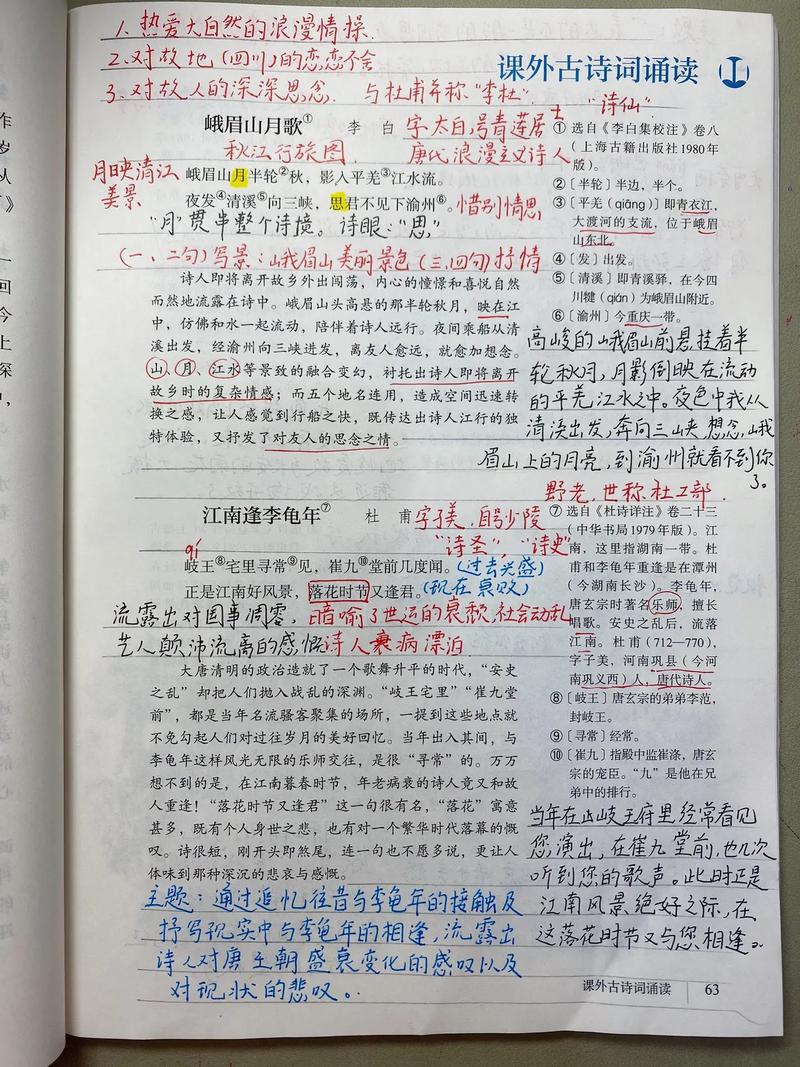 1.热爱大自然的浪漫情操.
2.对故地(四川)的恋恋不舍
3.对故人的深深思念. 与杜甫并称"李杜".
课外古诗词诵读
"诗仙"
峨眉山月歌① 李 白 字太白,号青莲居士
秋江行旅图. 唐代浪漫主义诗人
月映清江
美景
峨眉山月半轮②秋,影入平羌③江水流。
夜发④清溪⑤向三峡,思君不见下渝州⑥。惜别情思
"月"贯串整个诗境。诗眼:"思"
(一、二句)写景:峨眉山美丽景色(三、四句)抒情
诗人即将离开故乡外出闯荡,内心的憧憬和喜悦自然
而然地流露在诗中。峨眉山头高悬的那半轮秋月,映在江
中,仿佛和水一起流动,陪伴着诗人远行。夜间乘船从清
溪出发,经渝州向三峡进发,离友人愈远,就愈加想念。
山、月、江水等景致的融合变幻,衬托出诗人即将离开
故乡时的复杂情感;而五个地名连用,造成空间迅速转
换之感,让人感觉到行船之快,既传达出诗人江行的独
特体验,又抒发了对友人的思念之情。
① 选自《李白集校注》卷八
(上海古籍出版社1980年
版)。
②〔半轮〕半边,半个。
③〔平羌(qiāng)〕即青衣江,
大渡河的支流,位于峨眉
山东北。
④〔发〕出发。
⑤〔清溪〕即青溪驿,在今四
川犍(qián)为峨眉山附近。
⑥〔渝州〕今重庆一带。
高峻的峨眉山前悬挂着半
轮秋月,月影倒映在流动
的平羌江水之中。夜色中我从
清溪出发,奔向三峡,想念峨
眉山上的月亮,到渝州就看不到你
了。
野老,世称杜工部.
江南逢李龟年⑦ 杜 甫 字子美,自号少陵
"诗圣","诗史"
qí
岐王⑧宅里寻常⑨见,崔九⑩堂前几度闻。(过去兴盛)
正是江南好风景,落花时节又逢君。(现在衰败)
流露出对国事凋零, 暗喻了世运的衰颓,社会动乱
艺人颠沛流离的感慨 诗人衰病漂泊
大唐清明的政治造就了一个歌舞升平的时代,“安史
之乱”却把人们抛入战乱的深渊。“岐王宅里”“崔九堂
前”,都是当年名流骚客聚集的场所,一提到这些地点就
不免勾起人们对过往岁月的美好回忆。当年出入其间,与
李龟年这样风光无限的乐师交往,是很“寻常”的。万万
想不到的是,在江南暮春时节,年老病衰的诗人竟又和故
人重逢!“落花时节又逢君”这一句很有名,“落花”寓意
甚多,既有个人身世之悲,也有对一个繁华时代落幕的慨
叹。诗很短,刚开头即煞尾,连一句也不愿多说,更让人
体味到那种深沉的悲哀与感慨。
主题:通过追忆往昔与李龟年的接触及
抒写现实中与李龟年的相逢,流露出
诗人对唐王朝盛衰变化的感叹以及
对现状的悲叹。
⑦ 选自《杜诗详注》卷二十三
(中华书局1979年版)。江
南,这里指湖南一带。杜
甫和李龟年重逢是在潭州
(今湖南长沙)。李龟年,
唐玄宗时著名乐师,擅长
唱歌。安史之乱后,流落
江南。杜甫(712—770),
字子美,河南巩县(今河
南巩义西)人,唐代诗人。
⑧〔岐王〕唐玄宗的弟弟李范,
封岐王。
⑨〔寻常〕经常。
⑩〔崔九〕指殿中监崔涤,唐玄
宗的宠臣。“九”是他在兄
弟中的排行。
当年在岐王府里经常看见
您演出,在崔九堂前,也几次
听到您的歌声。此时正是
江南风景绝好之际,在
这落花时节又与您相逢。
课外古诗词诵读 63